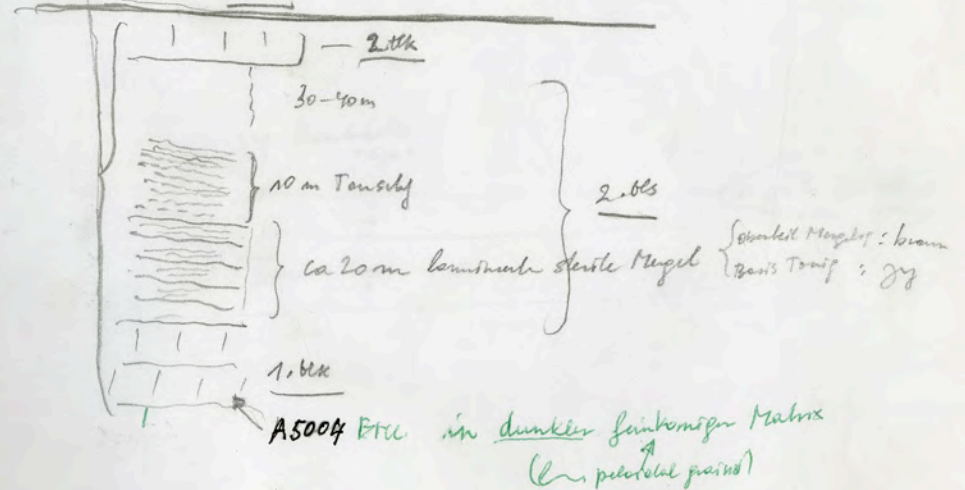 2. tlk
30-40m
10 m Tonschf
2. bls
ca 20 m laminierte sterile Mergel
Oberteil Mergelig : braun
Basis Tonig :
1. blk
A5004 in dunkler feinkörniger Matrix
peloidal grains)